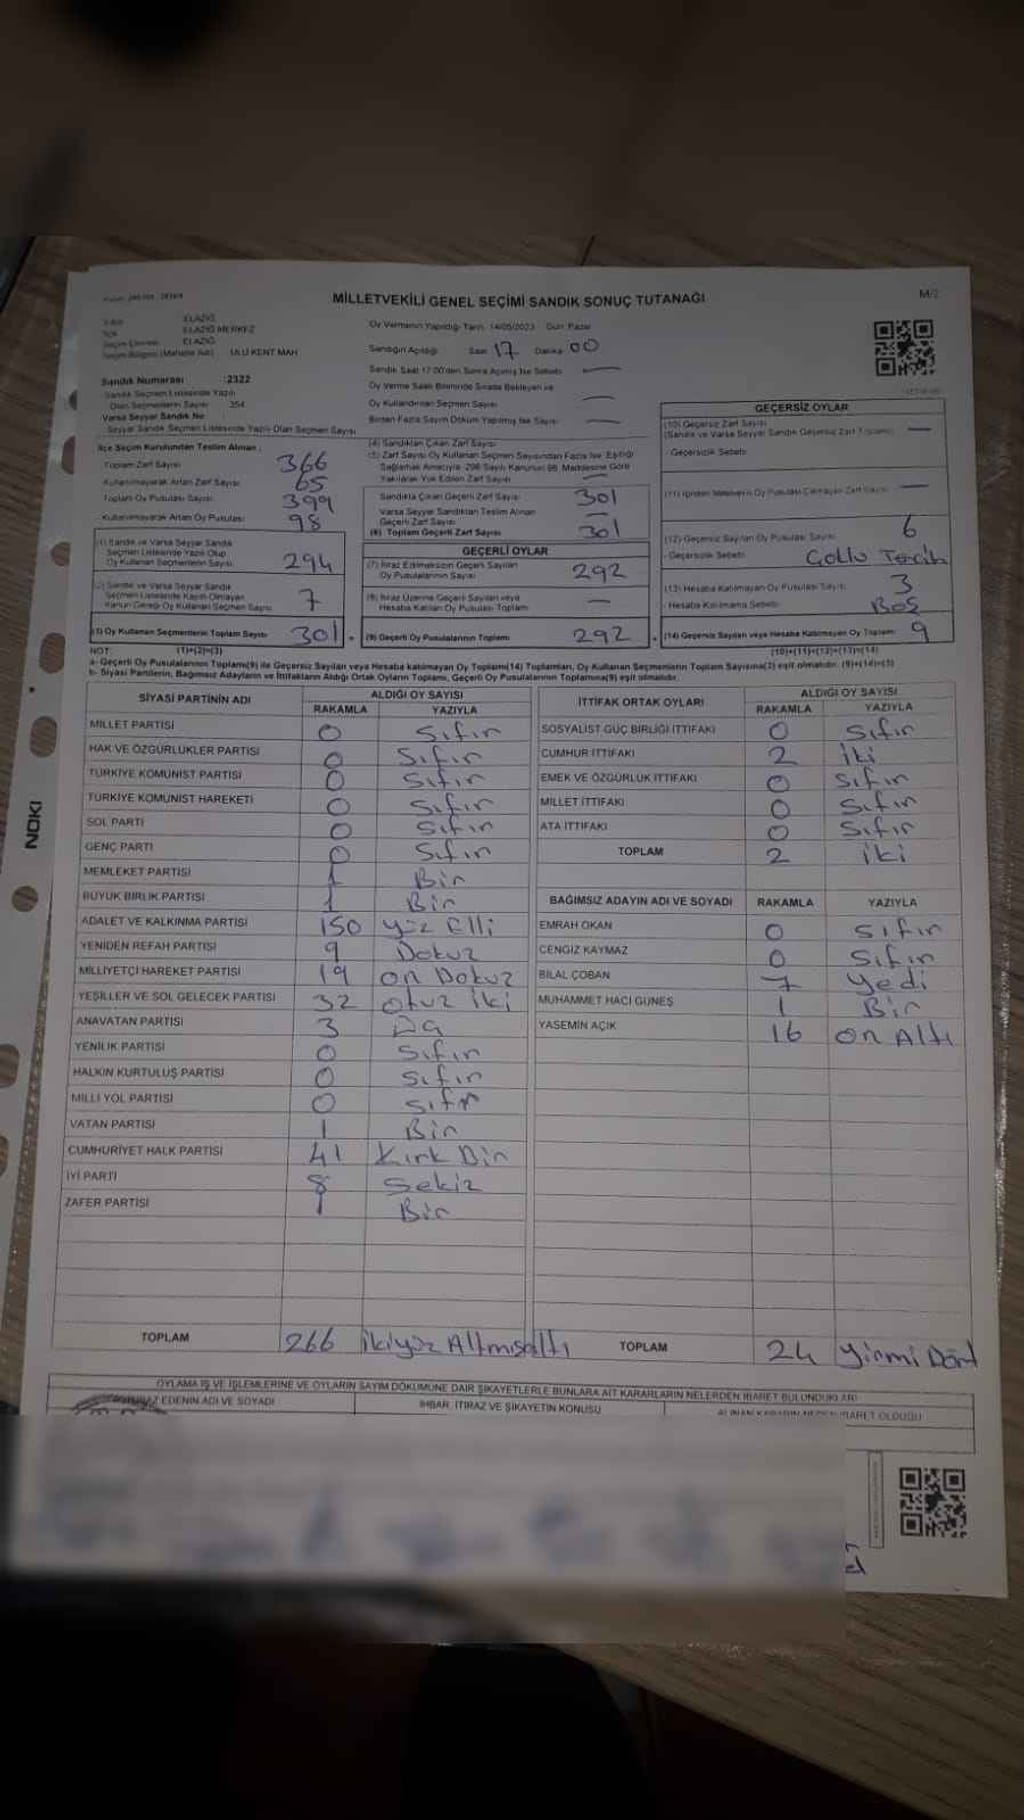 MİLLETVEKİLİ GENEL SEÇİMİ SANDIK SONUÇ TUTANAĞI
M/2
ELAZIĞ
ELAZIĞ MERKEZ
Seçim Çevresi ELAZIĞ
Seçim Bölgesi (Mahalle Adı) ULU KENT MAH
Oy Vermenin Yapıldığı Tarih 14/05/2023 Gün Pazar
Sandığın Açıldığı Saat 17 Dakika 00
Sandık Saat 17:00'den Sonra Açılmış İse Sebebi —
Oy Verme Saati Bitiminde Sırada Bekleyen ve
Oy Kullandırılan Seçmen Sayısı —
Birden Fazla Sayım Döküm Yapılmış İse Sayısı —
Sandık Numarası :2322
Sandık Seçmen Listesinde Yazılı
Olan Seçmenlerin Sayısı 354
Varsa Seyyar Sandık No
Seyyar Sandık Seçmen Listesinde Yazılı Olan Seçmen Sayısı
İlçe Seçim Kurulundan Teslim Alınan :
Toplam Zarf Sayısı 366
Kullanılmayarak Artan Zarf Sayısı 65
Toplam Oy Pusulası Sayısı 399
Kullanılmayarak Artan Oy Pusulası 98
(1) Sandık ve Varsa Seyyar Sandık
Seçmen Listesinde Yazılı Olup
Oy Kullanan Seçmenlerin Sayısı 294
(2) Sandık ve Varsa Seyyar Sandık
Seçmen Listesinde Kaydı Olmayan
Kanun Gereği Oy Kullanan Seçmen Sayısı 7
(3) Oy Kullanan Seçmenlerin Toplam Sayısı 301
(4) Sandıktan Çıkan Zarf Sayısı
(5) Zarf Sayısı Oy Kullanan Seçmen Sayısından Fazla İse, Eşitliği
Sağlamak Amacıyla 298 Sayılı Kanunun 98. Maddesine Göre
Yakılarak Yok Edilen Zarf Sayısı —
Sandıkta Çıkan Geçerli Zarf Sayısı 301
Varsa Seyyar Sandıktan Teslim Alınan
Geçerli Zarf Sayısı —
(6) Toplam Geçerli Zarf Sayısı 301
GEÇERLİ OYLAR
(7) İtiraz Edilmeksizin Geçerli Sayılan
Oy Pusulalarının Sayısı 292
(8) İtiraz Üzerine Geçerli Sayılan veya
Hesaba Katılan Oy Pusulası Toplamı —
(9) Geçerli Oy Pusulalarının Toplamı 292
GEÇERSİZ OYLAR
(10) Geçersiz Zarf Sayısı
(Sandık ve Varsa Seyyar Sandık Geçersiz Zarf Toplamı) —
- Geçersizlik Sebebi
(11) İçinden Milletvekili Oy Pusulası Çıkmayan Zarf Sayısı —
(12) Geçersiz Sayılan Oy Pusulası Sayısı 6
- Geçersizlik Sebebi Çoklu Tercih
(13) Hesaba Katılmayan Oy Pusulası Sayısı 3
- Hesaba Katılmama Sebebi BOŞ
(14) Geçersiz Sayılan veya Hesaba Katılmayan Oy Toplamı 9
NOT: (1)+(2)=(3) (10)+(11)+(12)+(13)=(14)
a- Geçerli Oy Pusulalarının Toplamı(9) ile Geçersiz Sayılan veya Hesaba katılmayan Oy Toplamı(14) Toplamları, Oy Kullanan Seçmenlerin Toplam Sayısına(3) eşit olmalıdır. (9)+(14)=(3)
b- Siyasi Partilerin, Bağımsız Adayların ve İttifakların Aldığı Ortak Oyların Toplamı, Geçerli Oy Pusulalarının Toplamına(9) eşit olmalıdır.
SİYASİ PARTİNİN ADI ALDIĞI OY SAYISI
RAKAMLA YAZIYLA
MİLLET PARTİSİ 0 Sıfır
HAK VE ÖZGÜRLÜKLER PARTİSİ 0 Sıfır
TÜRKİYE KOMÜNİST PARTİSİ 0 Sıfır
TÜRKİYE KOMÜNİST HAREKETİ 0 Sıfır
SOL PARTİ 0 Sıfır
GENÇ PARTİ 0 Sıfır
MEMLEKET PARTİSİ 1 Bir
BÜYÜK BİRLİK PARTİSİ 1 Bir
ADALET VE KALKINMA PARTİSİ 150 Yüz Elli
YENİDEN REFAH PARTİSİ 9 Dokuz
MİLLİYETÇİ HAREKET PARTİSİ 19 On Dokuz
YEŞİLLER VE SOL GELECEK PARTİSİ 32 Otuz İki
ANAVATAN PARTİSİ 3
YENİLİK PARTİSİ 0 Sıfır
HALKIN KURTULUŞ PARTİSİ 0 Sıfır
MİLLİ YOL PARTİSİ 0 Sıfır
VATAN PARTİSİ 1 Bir
CUMHURİYET HALK PARTİSİ 41 Kırk Bir
İYİ PARTİ 8 Sekiz
ZAFER PARTİSİ 1 Bir
TOPLAM 266 İkiyüz Altmışaltı
İTTİFAK ORTAK OYLARI ALDIĞI OY SAYISI
RAKAMLA YAZIYLA
SOSYALİST GÜÇ BİRLİĞİ İTTİFAKI 0 Sıfır
CUMHUR İTTİFAKI 2 İki
EMEK VE ÖZGÜRLÜK İTTİFAKI 0 Sıfır
MİLLET İTTİFAKI 0 Sıfır
ATA İTTİFAKI 0 Sıfır
TOPLAM 2 İki
BAĞIMSIZ ADAYIN ADI VE SOYADI RAKAMLA YAZIYLA
EMRAH OKAN 0 Sıfır
CENGİZ KAYMAZ 0 Sıfır
BİLAL ÇOBAN 7 Yedi
MUHAMMET HACI GÜNEŞ 1 Bir
YASEMİN AÇIK 16 On Altı
TOPLAM 24 Yirmi Dört
OYLAMA İŞ VE İŞLEMLERİNE VE OYLARIN SAYIM DÖKÜMÜNE DAİR ŞİKAYETLERLE BUNLARA AİT KARARLARIN NELERDEN İBARET BULUNDUKLARI
EDENİN ADI VE SOYADI İHBAR, İTİRAZ VE ŞİKAYETİN KONUSU
NOKI